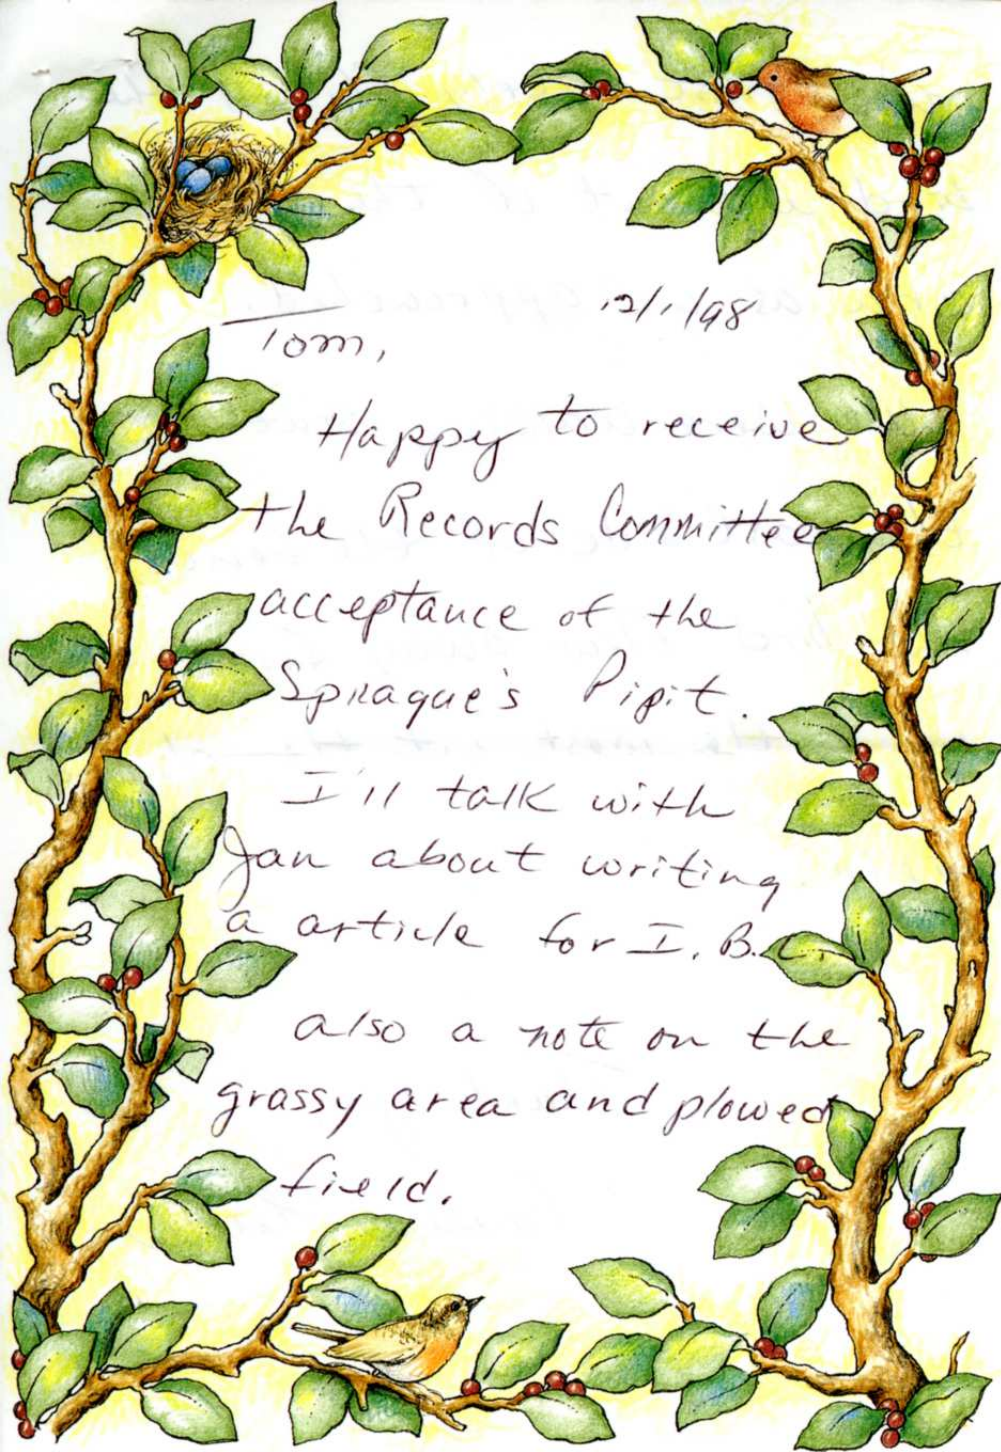 12/1/98
Tom,
Happy to receive
the Records Committee
acceptance of the
Sprague's Pipit.
I'll talk with
Jan about writing
a article for I.B.
also a note on the
grassy area and plowed
field.